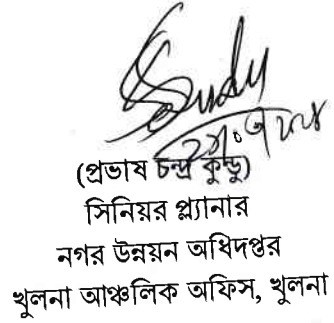 (প্রভাষ চন্দ্র কুন্ডু)
সিনিয়র প্ল্যানার
নগর উন্নয়ন অধিদপ্তর
খুলনা আঞ্চলিক অফিস, খুলনা